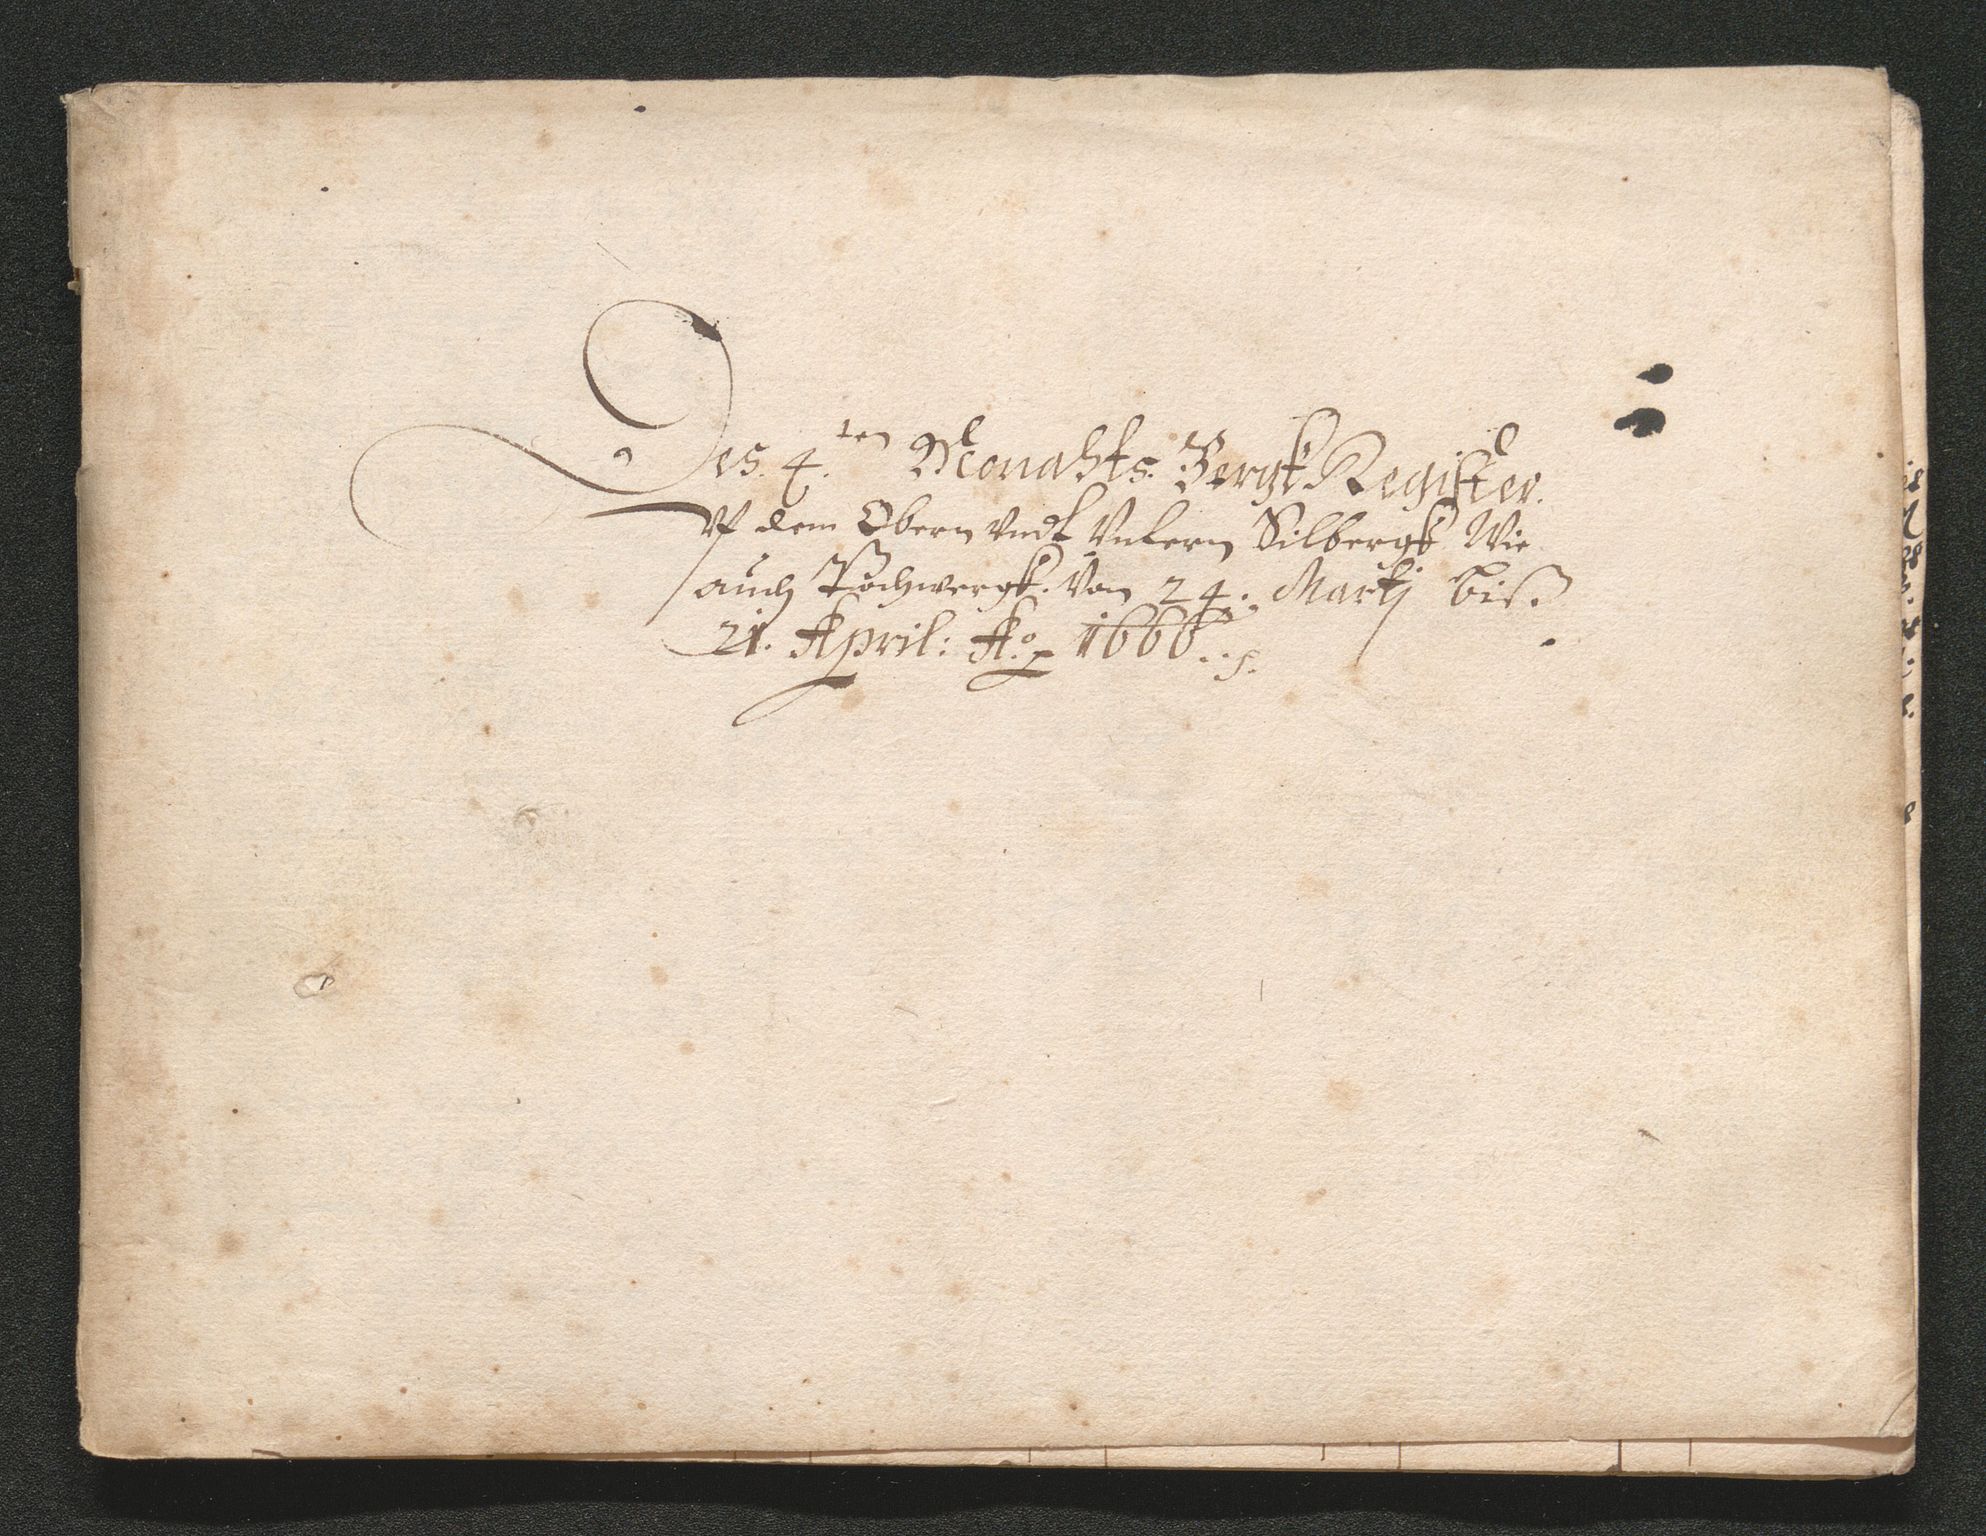 Des. 4.ten Monahts. Bergk Register.
Vf dem Obern Vndt Vntern Silbergk Wie
auch Pochwergk. Von 24. Martij biß
21. April: Ao. 1666.